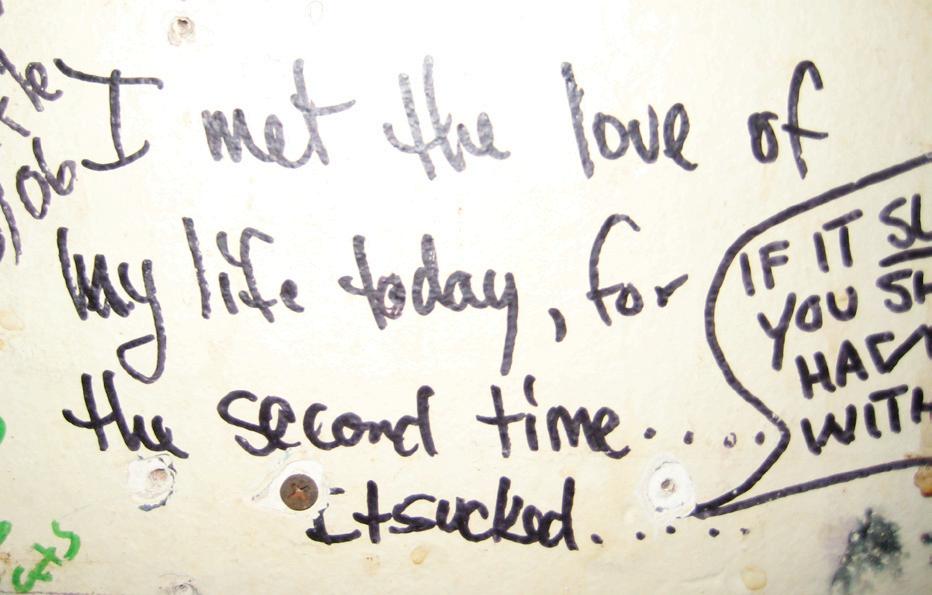 I met the love of
my life today, for
the second time....
It sucked......
IF IT
YOU
job